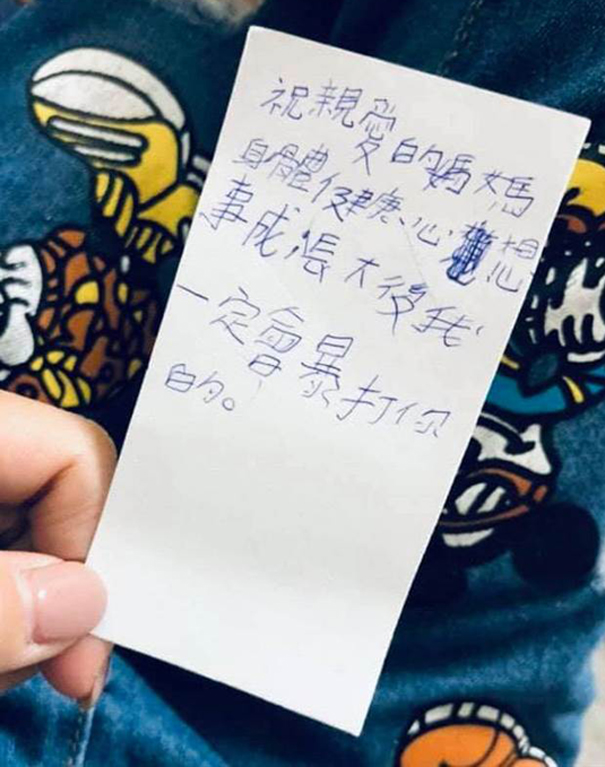 祝親愛的媽媽
身體健康心想
事成,張大後我
一定會暴打你
的。